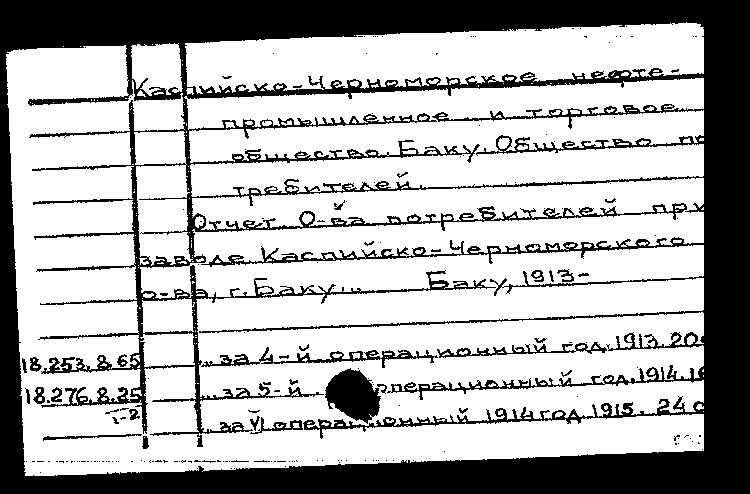 Каспийско-Черноморское нефте-
промышленное и торговое
общество. Баку. Общество по
требителей.
Отчет О-ва потребителей при
заводе Каспийско-Черноморского
о-ва, г. Баку... Баку, 1913-
18.253.8.65 ...за 4-й операционный год. 1913. 20с
18.276.8.25 ...за 5-й операционный год. 1914. 18
1-2 ...за VI операционный 1914 год. 1915. 24 с